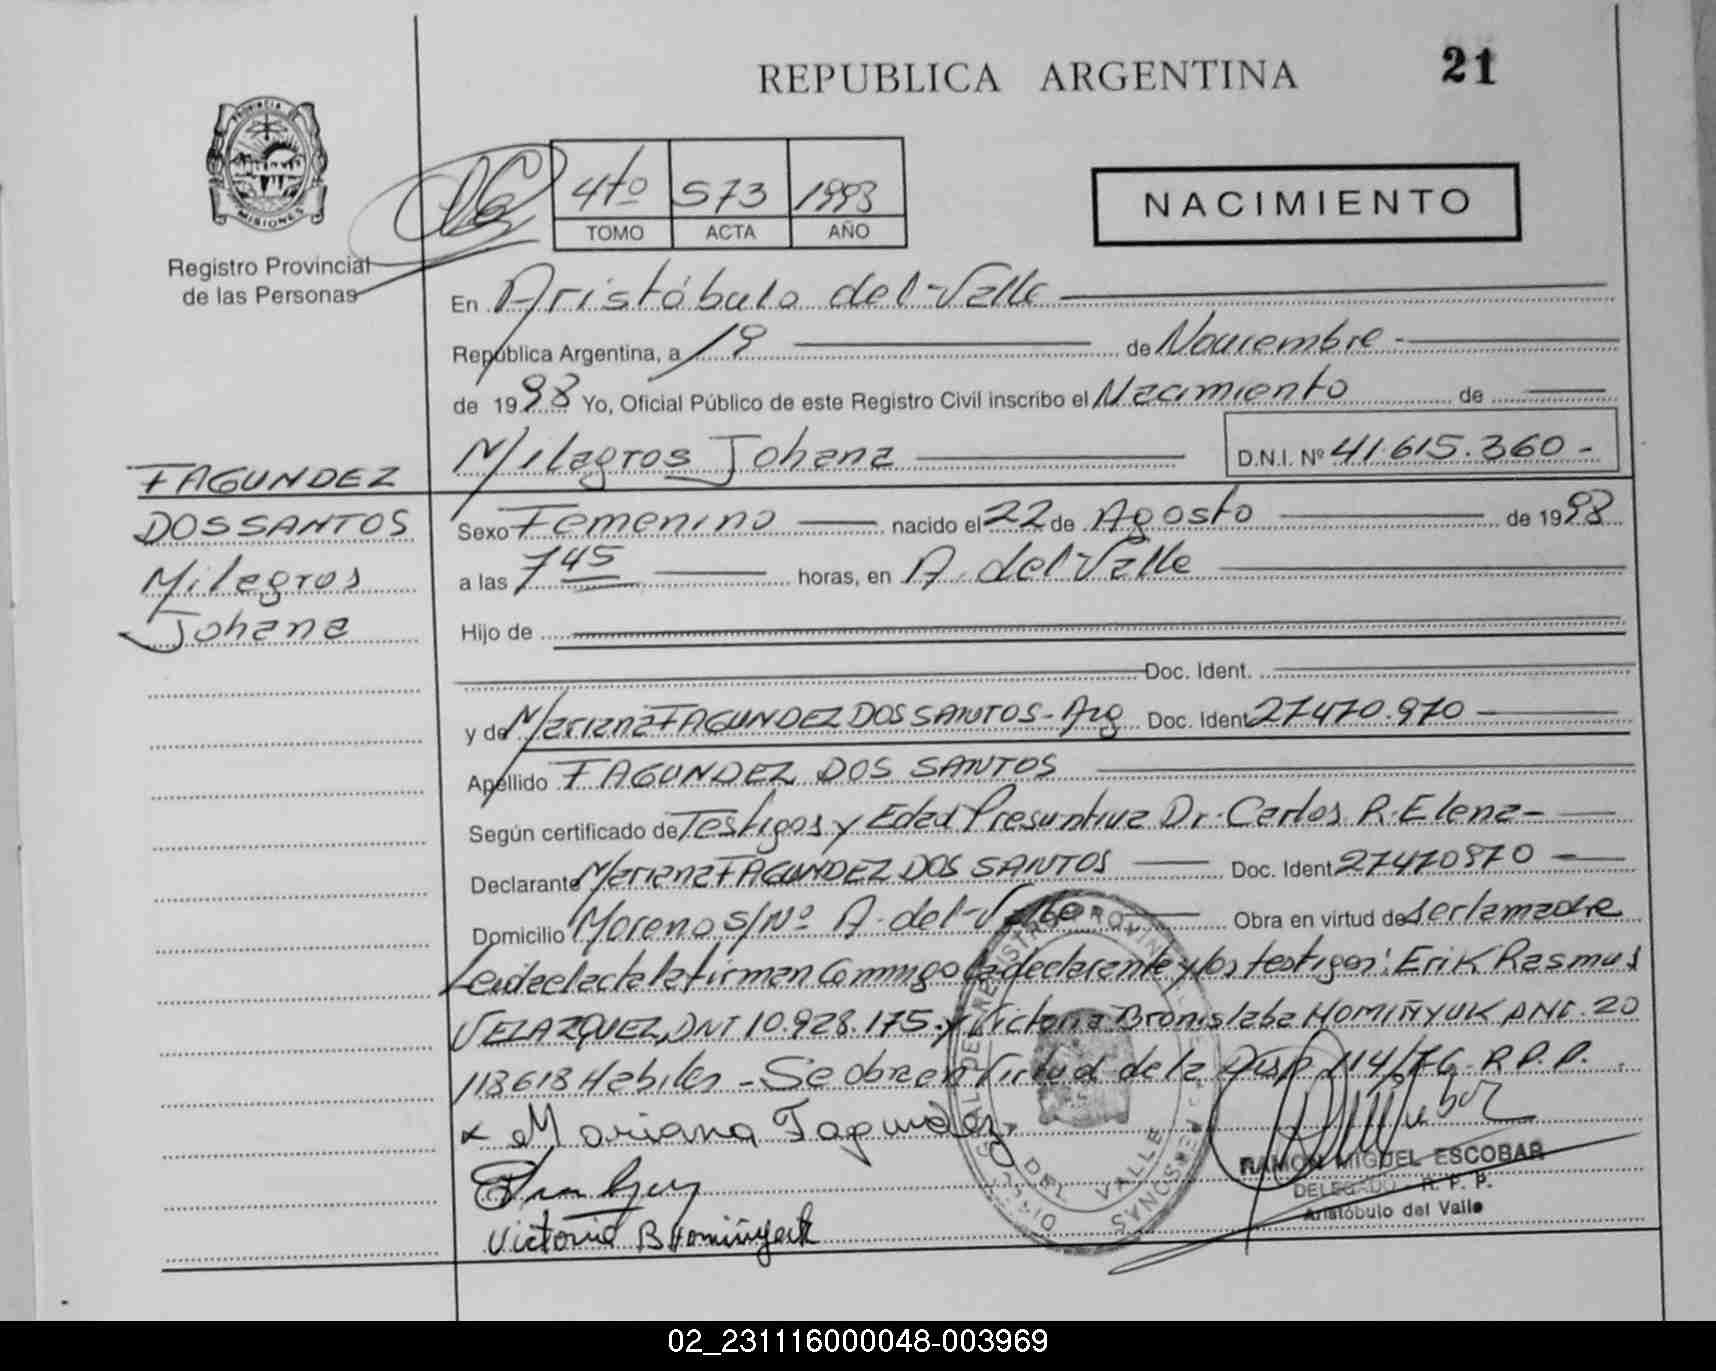 REPUBLICA ARGENTINA
21
PROVINCIA DE
MISIONES
Registro Provincial
de las Personas
4to 573 1998
TOMO ACTA AÑO
NACIMIENTO
En Aristóbulo del Valle
República Argentina, a 19 de Noviembre
de 1998 Yo, Oficial Público de este Registro Civil inscribo el Nacimiento de
Milagros Johana D.N.I. Nº 41.615.360-
FAGUNDEZ
DOS SANTOS
Milagros
Johana
Sexo Femenino nacido el 22 de Agosto de 1998
a las 7 45 horas, en A. del Valle
Hijo de
Doc. Ident.
y de Mariana FAGUNDEZ DOS SANTOS - Arg Doc. Ident 27470.970
Apellido FAGUNDEZ DOS SANTOS
Según certificado de Testigos y Edad Presuntiva Dr. Carlos R. Elena-
Declarante Mariana FAGUNDEZ DOS SANTOS Doc. Ident 27470970
Domicilio Moreno s/Nº A. del Valle Obra en virtud de ser la madre
Leída el acta la firman conmigo la declarante y los testigos: Erik Rasmus
VELAZQUEZ, DNI 10.928.175.y Victoria Bronislaba HOMIÑYUK DNI. 20
118618 Habiles - Se obra en virtud de la Disp 114/76-R.P.P.
x Mariana Fagundez
Victoria B Homiñyuk
RAMON MIGUEL ESCOBAR
DELEGADO R. P. P.
Aristóbulo del Valle
DEL VALLE
02_231116000048-003969